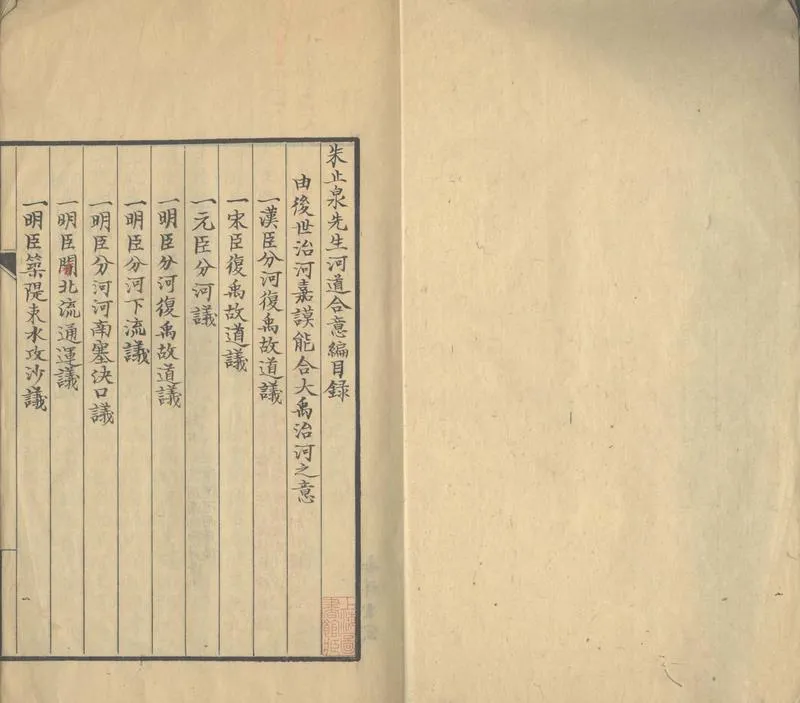 朱止泉先生河道合意編目録
由後世治河嘉謨能合大禹治河之意
一漢臣分河復禹故道議
一宋臣復禹故道議
一元臣分河議
一明臣分河復禹故道議
一明臣分河下流議
一明臣分河河南塞决口議
一明臣開北流通運議
一明臣築隄束水攻沙議
上海圖
書館藏